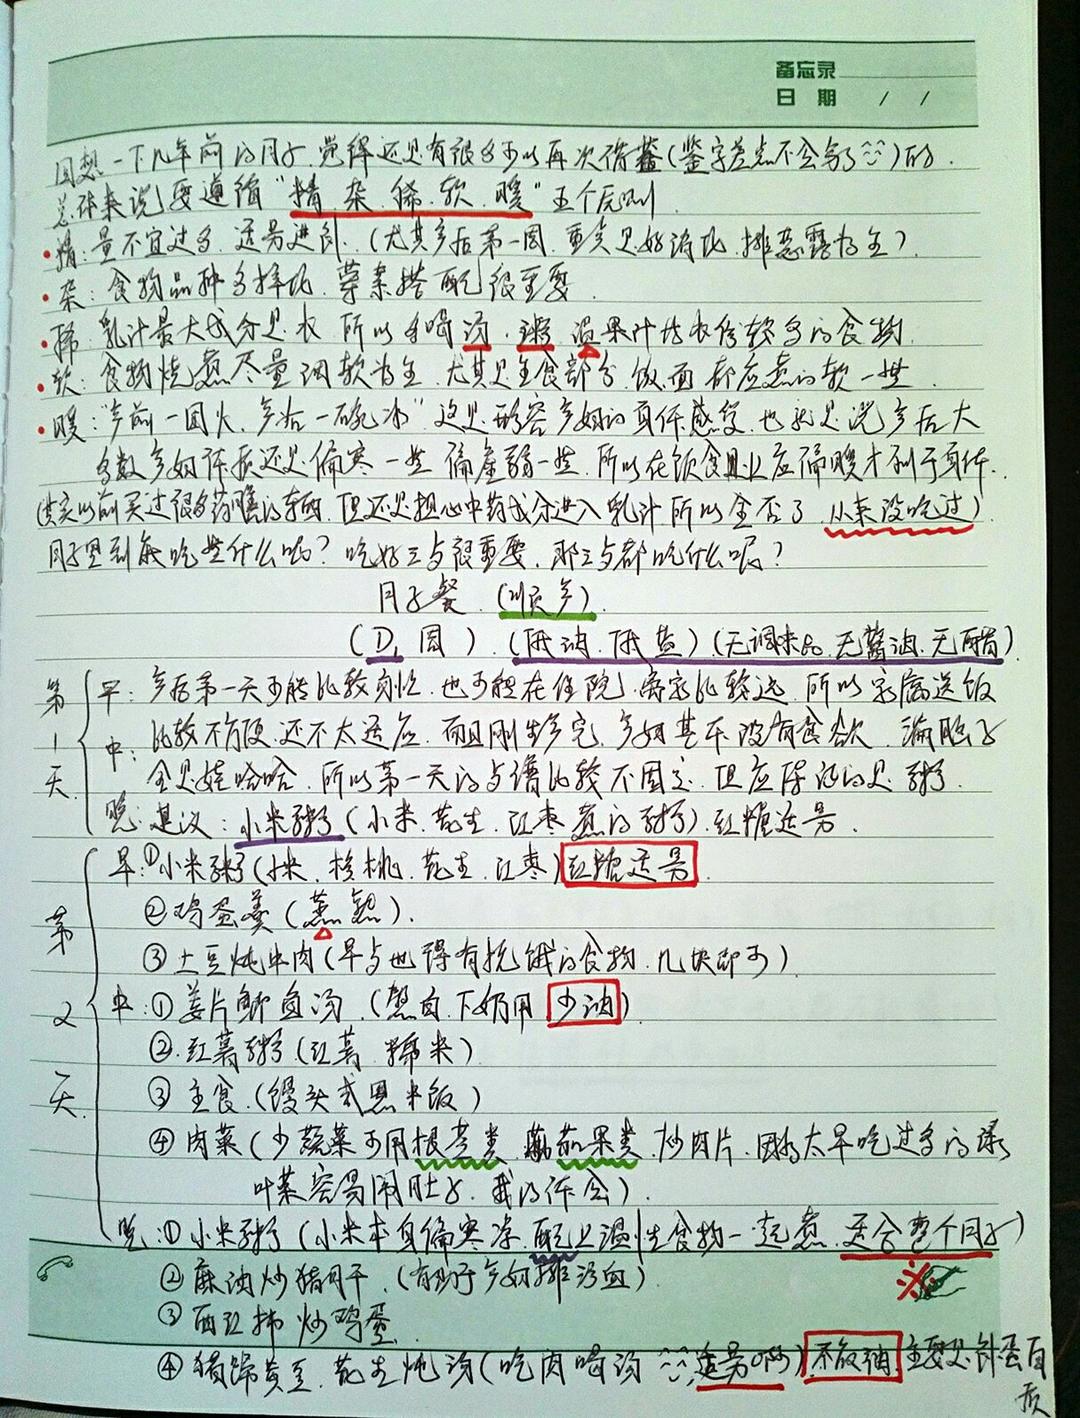 备忘录
日 期 / /
回想一下几年前的月子.觉得还是有很多可以再次借鉴(鉴字差点不会写了)的.
总体来说要遵循"精.杂.稀.软.暖"五个原则
精:量不宜过多.适量进剂.(尤其产后第一周.重点是好消化.排恶露为主)
杂:食物品种多样化.荤素搭配很重要.
稀:乳汁最大成分是水 所以多喝汤.粥.温果汁等水份较多的食物
软:食物烧煮尽量细软为主.尤其是主食部分.饭面都应煮的软一些.
暖:"产前一团火.产后一碗冰"这是形容产妇的身体感受.也就是说产后大
多数产妇体质还是偏寒一些 偏虚弱一些.所以在饮食上应偏暖才利于身体.
(其实以前买过很多药膳的东西.但还是担心中药成分进入乳汁 所以全否了.从来没吃过)
月子里到底吃些什么呢?吃好三与很重要.那三与都吃什么呢?
月子餐.(顺产)
(D1周) (低油.低盐)(无调味品.无酱油.无醋)
第1天 早:产后第一天可能比较匆忙.也可能在住院.离家比较远.所以家属送饭
中:比较不方便.还不太适应.而且刚生产完.产妇基本没有食欲.满脑子
全是娃哈哈.所以第一天的与谱比较不固定.但应陈记的是粥.
晚:建议:小米粥(小米.花生.红枣煮的粥).红糖适量.
第2天 早:①小米粥(小米.核桃.花生.红枣)红糖适量
②鸡蛋羹(蒸熟).
③土豆炖牛肉(早与也得有抗饿的食物.几块即可)
中:①姜片鲫鱼汤.(蛋白.下奶用 少油)
②.红薯粥(红薯.稀米)
③主食.(馒头或黑米饭)
④肉菜(少蔬菜可用根茎类.茄果类.炒肉片.因为太早吃过多的绿
叶菜容易闹肚子.我的体会).
晚:①小米粥(小米本身偏寒凉.配上温性食物一起煮.适合整个月子)
②麻油炒猪肝.(有助于产妇排污血)
③西红柿炒鸡蛋
④猪蹄黄豆.花生炖汤(吃肉喝汤 适量啊)不放油 主要是补蛋白
质